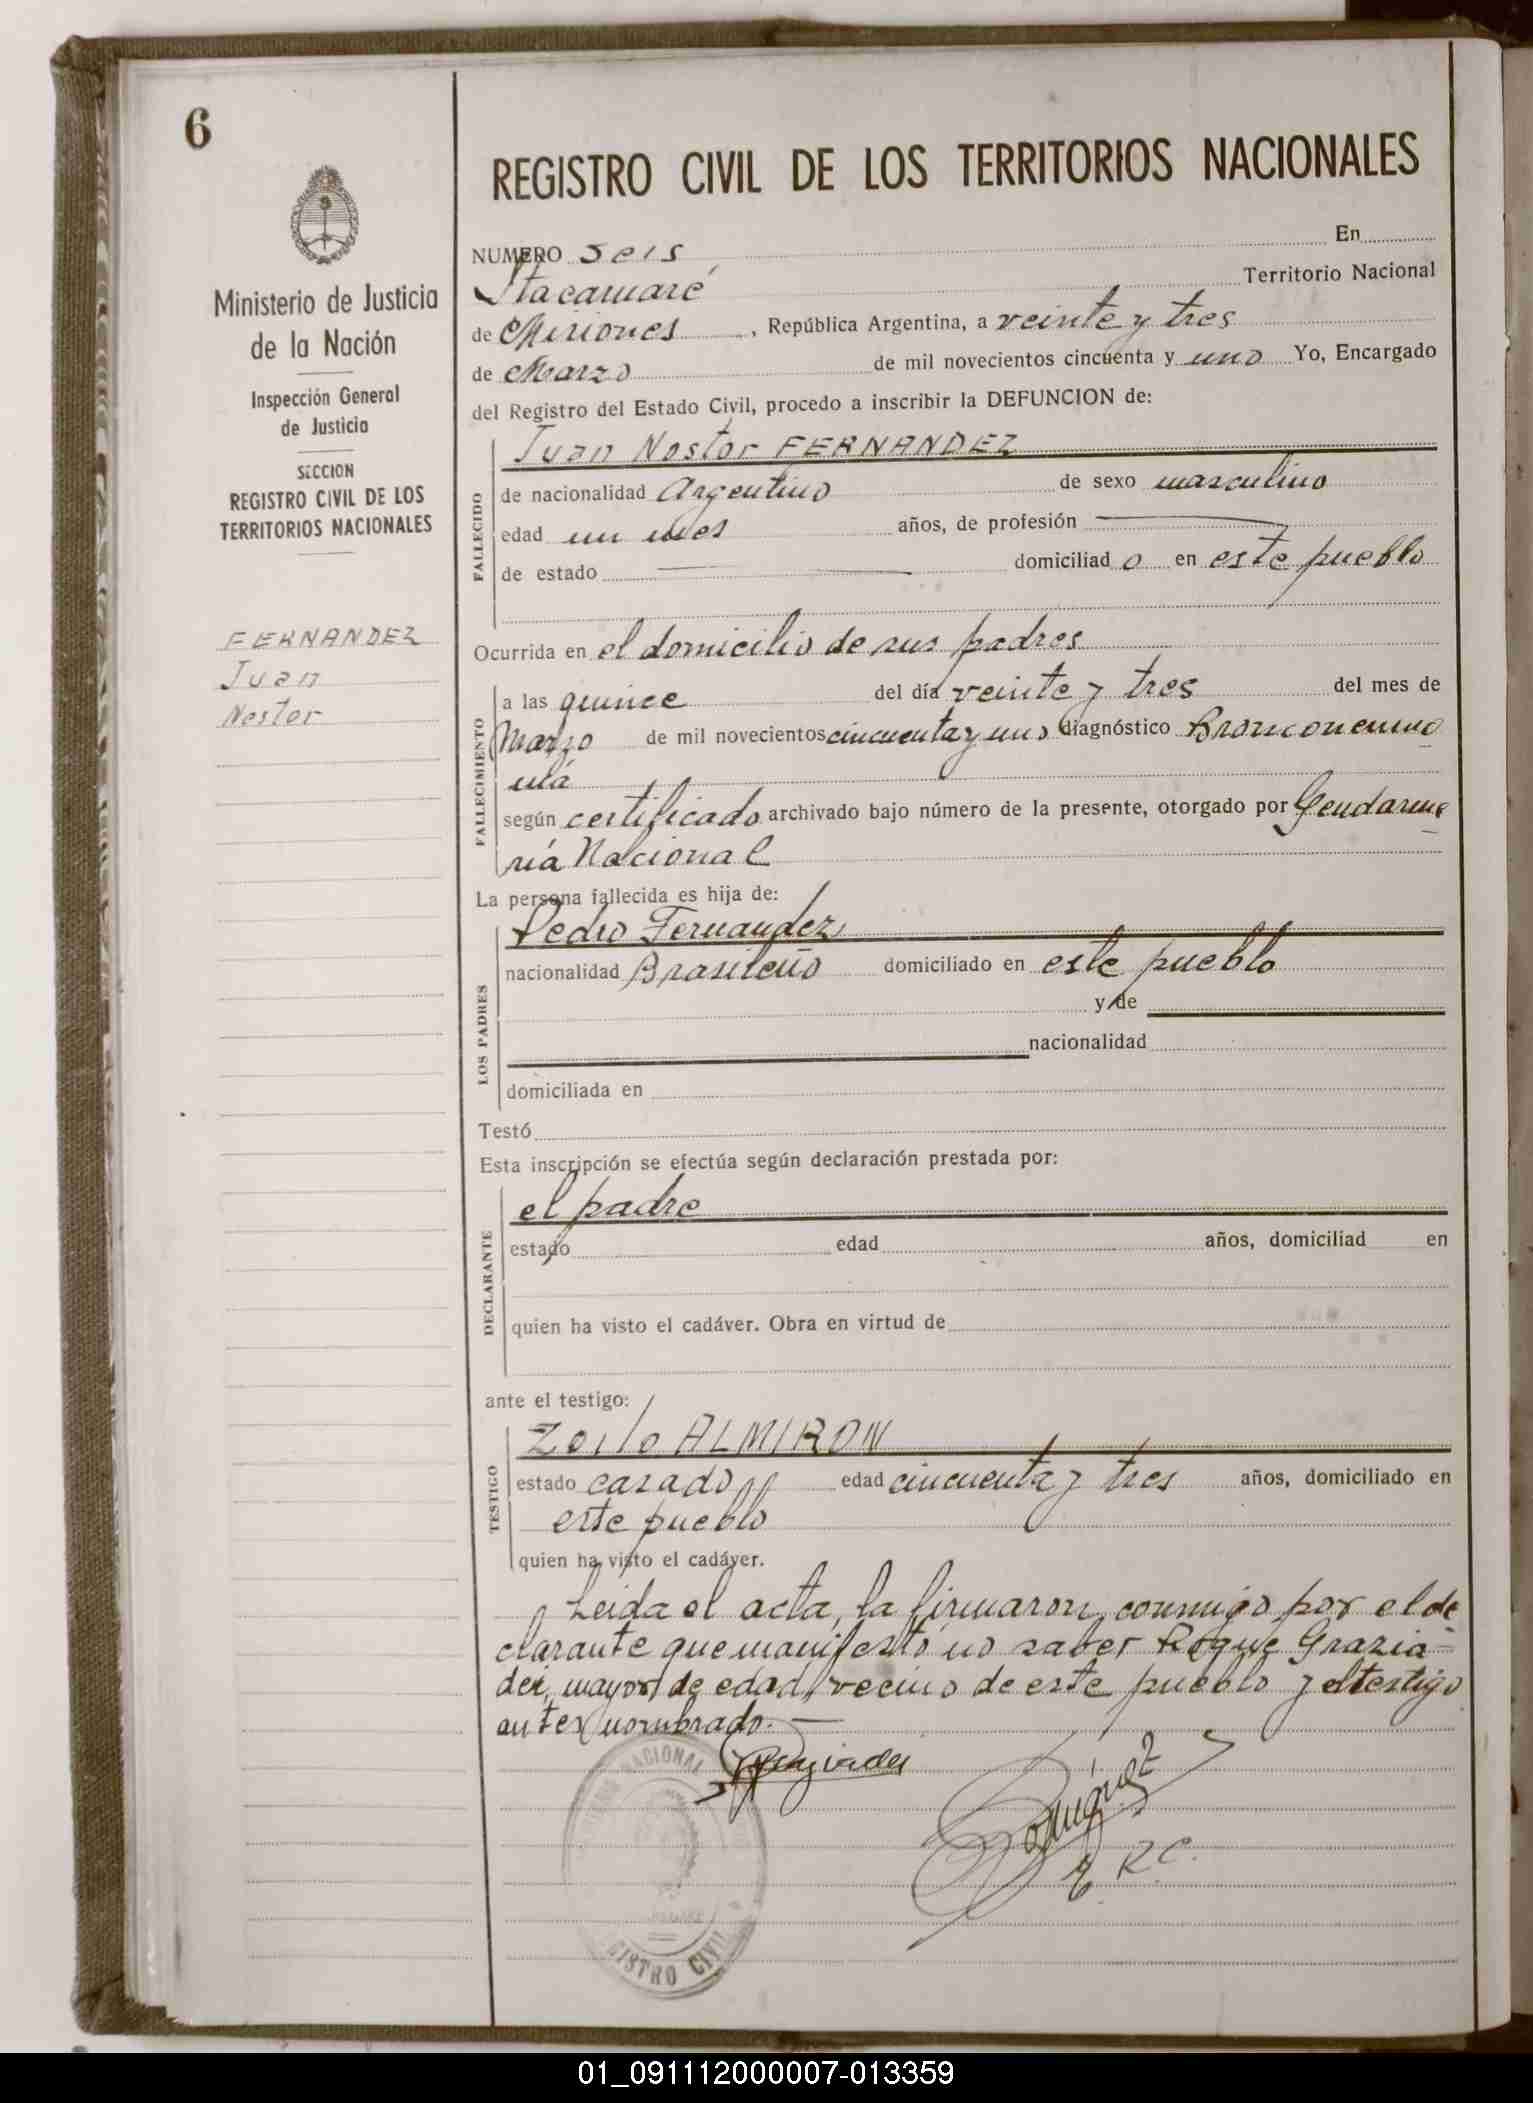 6
Ministerio de Justicia
de la Nación
Inspección General
de Justicia
SECCION
REGISTRO CIVIL DE LOS
TERRITORIOS NACIONALES
FERNANDEZ
Juan
Nestor
REGISTRO CIVIL DE LOS TERRITORIOS NACIONALES
NUMERO Seis En
Itacaruaré Territorio Nacional
de Misiones, República Argentina, a veinte y tres
de Marzo de mil novecientos cincuenta y uno Yo, Encargado
del Registro del Estado Civil, procedo a inscribir la DEFUNCION de:
FALLECIDO
Juan Nestor FERNANDEZ
de nacionalidad Argentino de sexo masculino
edad un mes años, de profesión
de estado domiciliado en este pueblo
Ocurrida en el domicilio de sus padres
FALLECIMIENTO
a las quince del día veinte y tres del mes de
Marzo de mil novecientos cincuenta y uno diagnóstico Bronconeumo
nía
según certificado archivado bajo número de la presente, otorgado por Gendarme
ría Nacional
La persona fallecida es hija de:
LOS PADRES
Pedro Fernandez
nacionalidad Brasileño domiciliado en este pueblo
y de
nacionalidad
domiciliada en
Testó
Esta inscripción se efectúa según declaración prestada por:
DECLARANTE
el padre
estado edad años, domiciliad en
quien ha visto el cadáver. Obra en virtud de
ante el testigo:
TESTIGO
Zoilo ALMIRON
estado casado edad cincuenta y tres años, domiciliado en
este pueblo
quien ha visto el cadáver.
Leida el acta, la firmaron conmigo por el de
clarante que manifestó no saber Roque Grazia=
dei, mayor de edad, vecino de este pueblo y el testigo
antes nombrado.—
Graziadei
Rodriguez
E. R.C.
NACIONAL
REGISTRO CIVIL
01_091112000007-013359